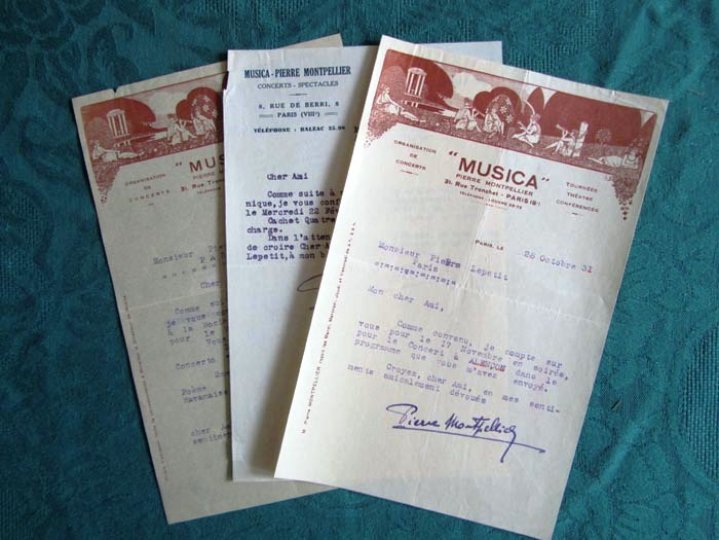 MUSICA - PIERRE MONTPELLIER
CONCERTS - SPECTACLES
8, RUE DE BERRI, 8
PARIS (VIIIe)
TÉLÉPHONE : BALZAC
Cher Ami
Comme suite à
nique, je vous conf
le Mercredi 22 Fé
Cachet Quatre
charge.
Dans l'atten
de croire Cher A
Lepetit, à mon
ORGANISATION
DE
CONCERTS
"MUS
PIERRE
31, Rue
Monsieur Pie
Cher
Comme su
je vous
à la
pour le
Concerto
Poème
Havanaise
cher
ORGANISATION
DE
CONCERTS
"MUSICA"
PIERRE MONTPELLIER
31, Rue Tronchet - PARIS (8e)
TOURNÉES
THÉATRE
CONFÉRENCES
PARIS, LE 28 Octobre 31
Monsieur Pierre Lepetit
Paris
Mon cher Ami,
Comme convenu, je compte sur
vous pour le 19 Novembre en soirée,
pour le Concert à ALENCON dans le
programme que vous m'avez envoyé.
Croyez, cher Ami, en mes senti-
ments amicalement dévoués
Pierre Montpellier